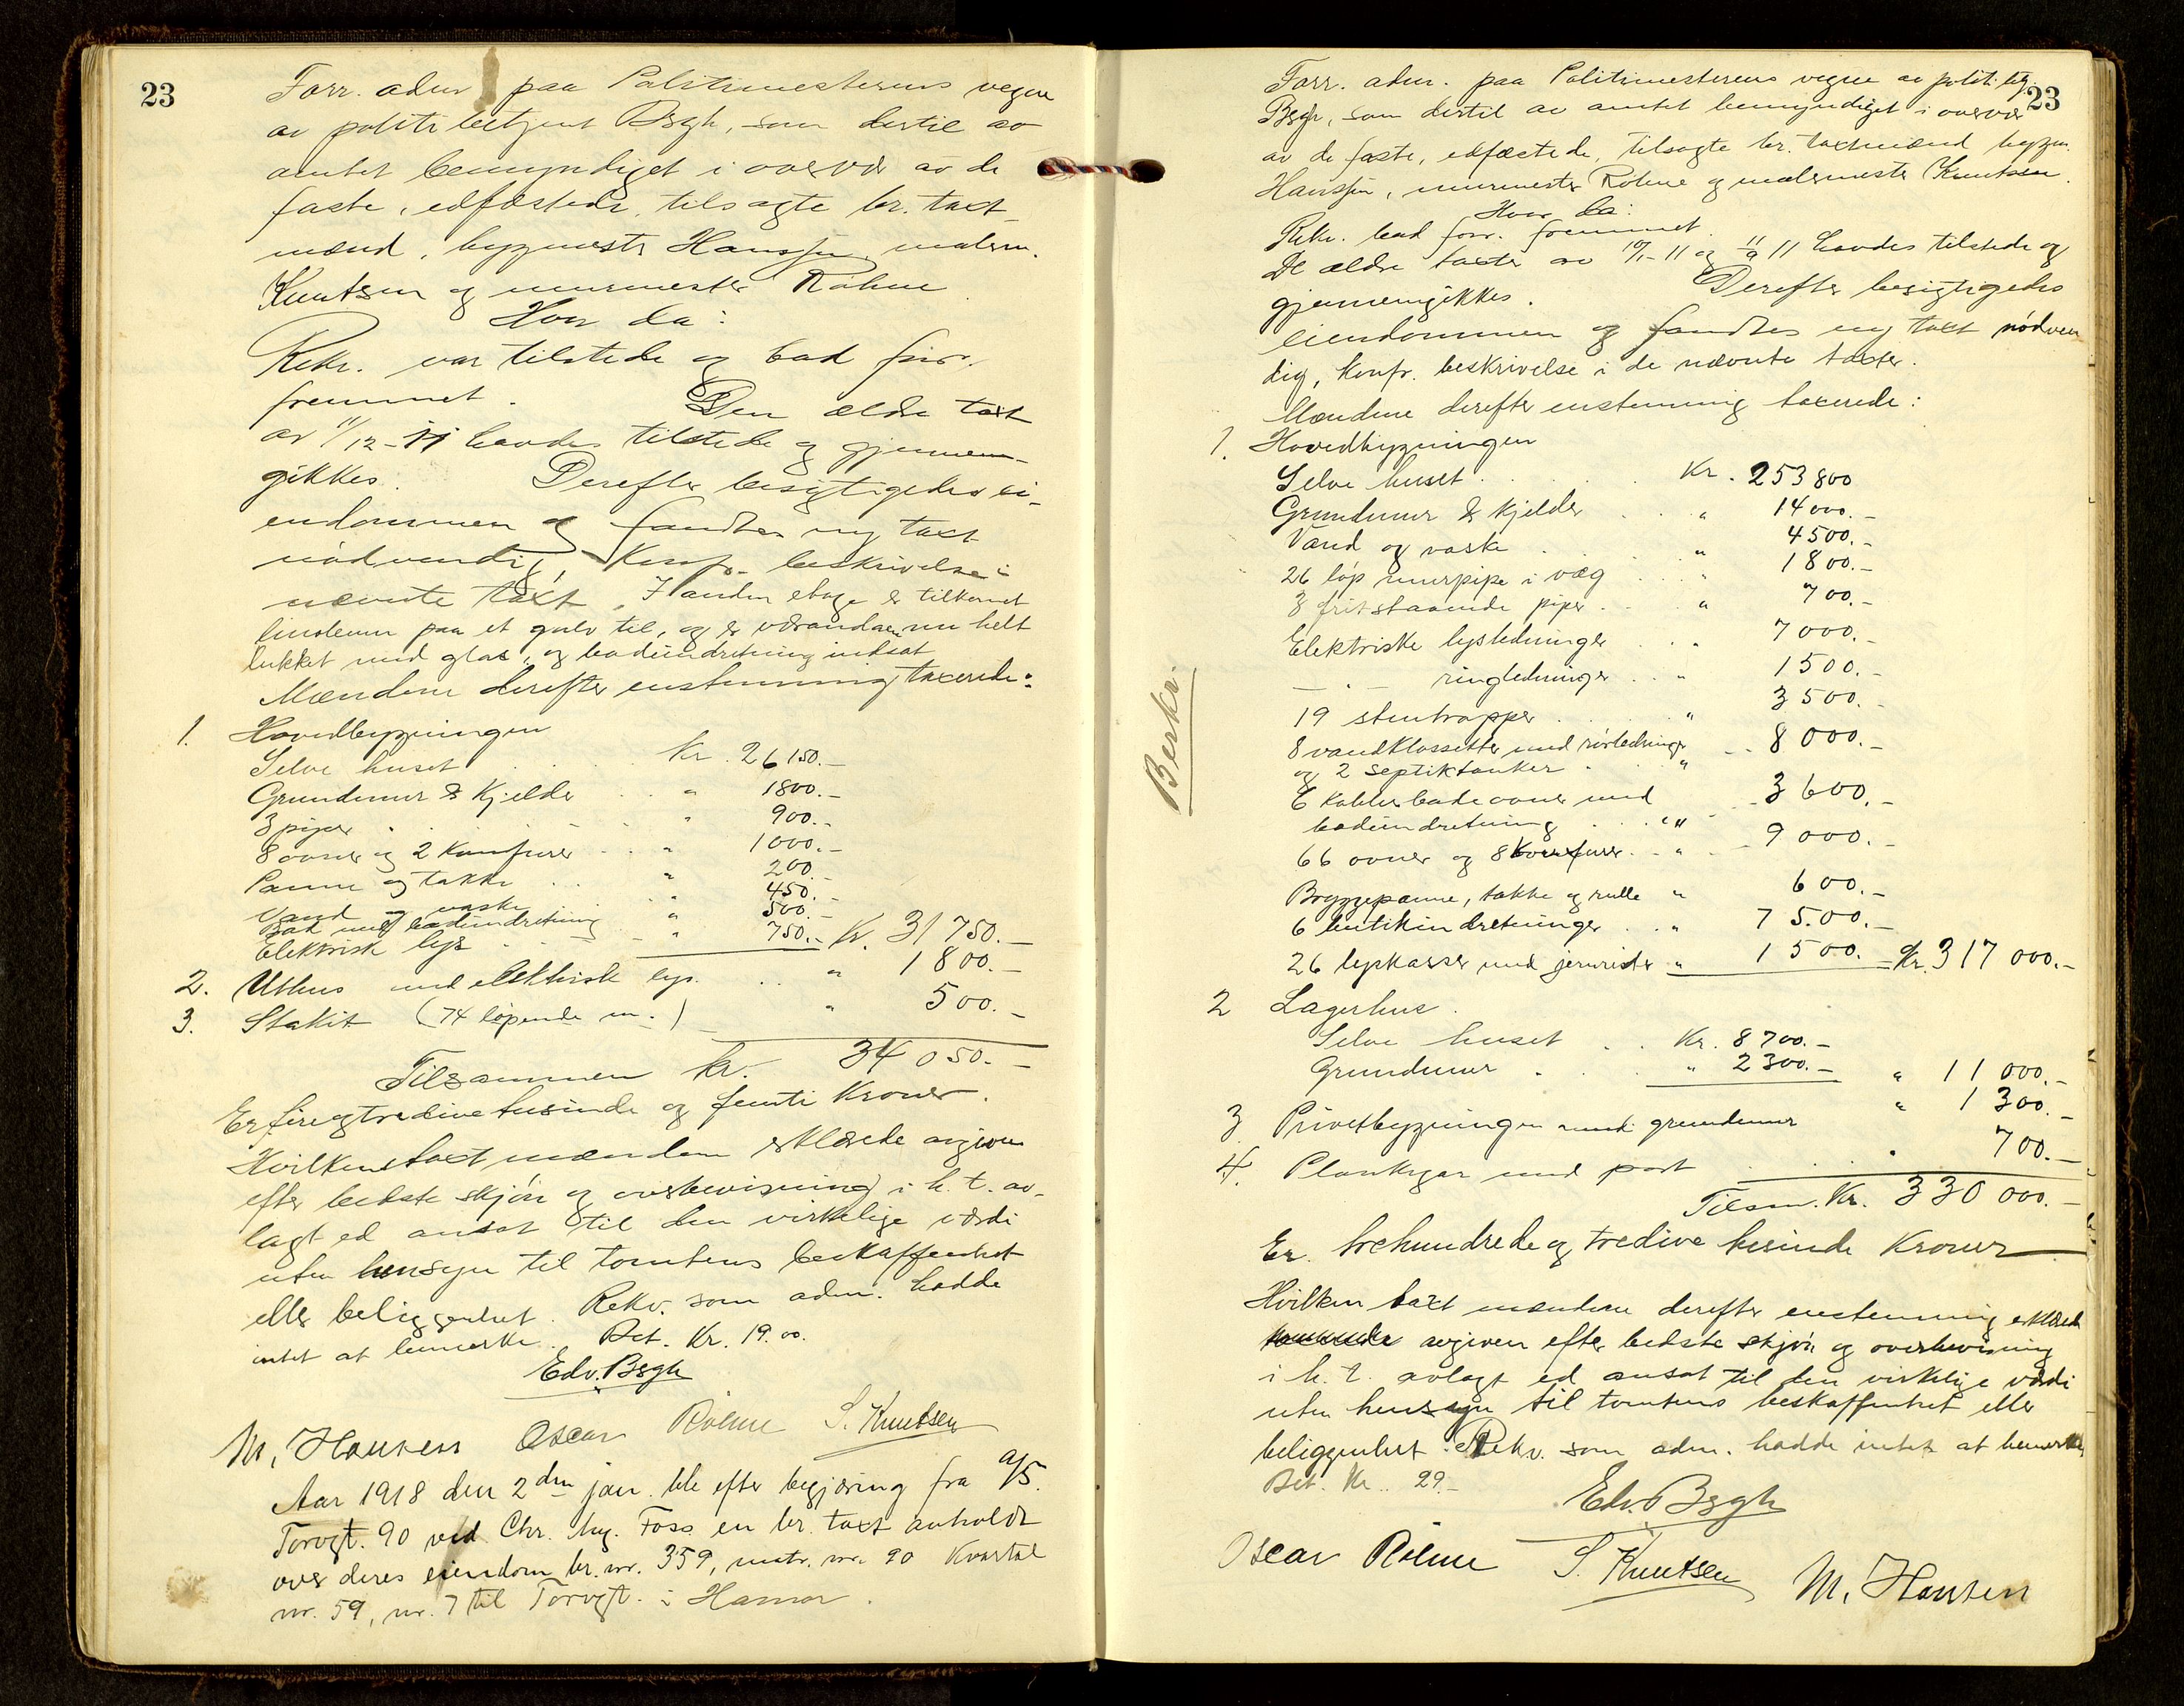 23
Forr. adm. paa Politimesterens vegne
av politibetjent Bergh, som dertil av
amtet bemyndiget i overvær av de
faste, edfæstede, tilsagte br. taxt-
mænd, bygmester Hanssen, malerm.
Knutsen og murmester Rölme
Hvor da:
Rekv. var tilstede og bad forr.
fremmet. Den ældre taxt
av 11/12-11 havdes tilstede og gjennem-
gikkes. Derefter besigtigedes ei-
endommen og fandtes ny taxt
nødvendig, Konfr. beskrivelse i
nævnte taxt. I anden etage er tilkommet
linoleum paa et gulv til, og er verandaen nu helt
lukket med glas, og badeindretning indsat
Mændene derefter enstemmig taxerede:
1. Hovedbygningen
Selve huset Kr. 26 150.-
Grundmur & Kjelder " 1800.-
3 piper " 900.-
8 ovner og 2 Komfurer " 1000.-
Panne og takke " 200.-
Vand og vaske " 450.-
Bad med badeindretning " 500.-
Elektrisk lys " 750.- Kr. 31 750.-
2. Uthus med elektrisk lys " 1 800.-
3. Stakit (74 løpende m.) " 500.-
Tilsammen kr. 34 050.-
Er firegtredive tusinde og femti Kroner.
Hvilken taxt mændene erklærede avgiven
efter bedste skjön og overbevisning i h. t. av-
lagt ed ansat til den virkelige værdi
uten hensyn til tomtens beskaffenhet
eller beliggenhet. Rekv. som adm. hadde
intet at bemerke. Bet. Kr. 19.00.
Edv. Bergh
M. Hansen Oscar Rölme S. Knutsen
Aar 1918 den 2den jan. ble efter begjæring fra A/S.
Torvgt. 90 ved Chr. Foss en br. taxt avholdt
over deres eiendom br. nr. 359, matr. nr. 90 Kvartal
nr. 59, nr. 7 til Torvgt. i Hamar.
23
Forr. adm. paa Politimesterens vegne av politibtj.
Bergh, som dertil av amtet bemyndiget i overvær
av de faste, edfæstede, tilsagte br. taxtmænd bygm.
Hanssen, murmester Rölme og malermester Knutsen.
Hvor da:
Rekv. bad forr. fremmet.
De ældre taxter av 11 og 11/9 11 havdes tilstede og
gjennemgikkes. Derefter besigtigedes
eiendommen og fandtes ny taxt nödven
dig, Konfr. beskrivelse i de nævnte taxter.
Mændene derefter enstemmig taxerede:
1. Hovedbygningen
Selve huset Kr. 253 800
Grundmur & Kjelder " 14 000.-
Vand og vaske " 4500.-
26 løp murpipe i væg " 1800.-
8 fritstaaende piper " 700.-
Elektriske lysledninger " 7 000.-
- " - ringledninger " 1 500.-
19 stentrapper " 3 500.-
8 vandklossetter med rörledninger
og 2 septiktanker " 8 000.-
6 Kobberbadeovner med
badeindretning " 3 600.-
66 ovner og 8 Komfurer " 9 000.-
Bryggepanne, takke og rulle " 600.-
6 butikindretninger " 7 500.-
26 lyskasser med jernrister " 1 500.- Kr. 317 000.-
2 Lagerhus.
Selve huset Kr. 8 700.-
Grundmur " 2 300.- " 11 000.-
3 Privetbygningen med grundmur " 1 300.-
4. Plankegar med port " 700.-
Tilsm. Kr. 330 000.-
Er. trehundrede og tredive tusinde Kroner
Hvilken taxt mændene derefter enstemmig erklærede
avgiven efter bedste skjön og overbevisning
i h. t. avlagt ed ansat til den virkelige værdi
uten hensyn til tomtens beskaffenhet eller
beliggenhet. Rekv. som adm. hadde intet at bemerke
Bet. Kr. 29.-
Edv. Bergh
Oscar Rölme S. Knutsen M. Hansen